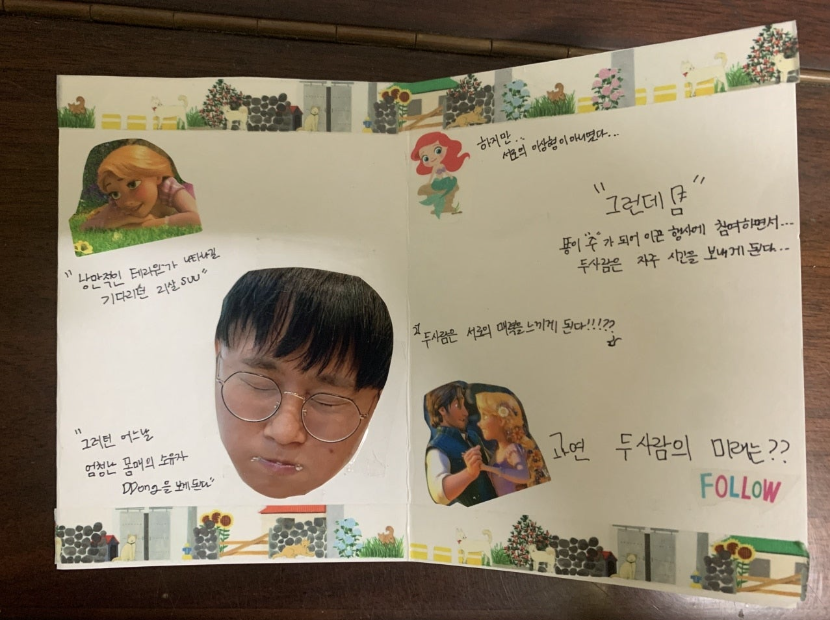 " 낭만적인 테라원"가 나타나길
기다리던 리살suu "
" 그러던 어느날
엄청난 몸매의 소유자
DDong을 보게된다"
하지만..
서로의 이상형이 아니였다...
"그런데 뭄"
똥이 "주"가 되어 이끈 행사에 참여하면서...
두사람은 자주 시간을 보내게 된다...
두사람은 서로의 매력을느끼게 된다!!!??
과연 두사람의 미래는??
FOLLOW